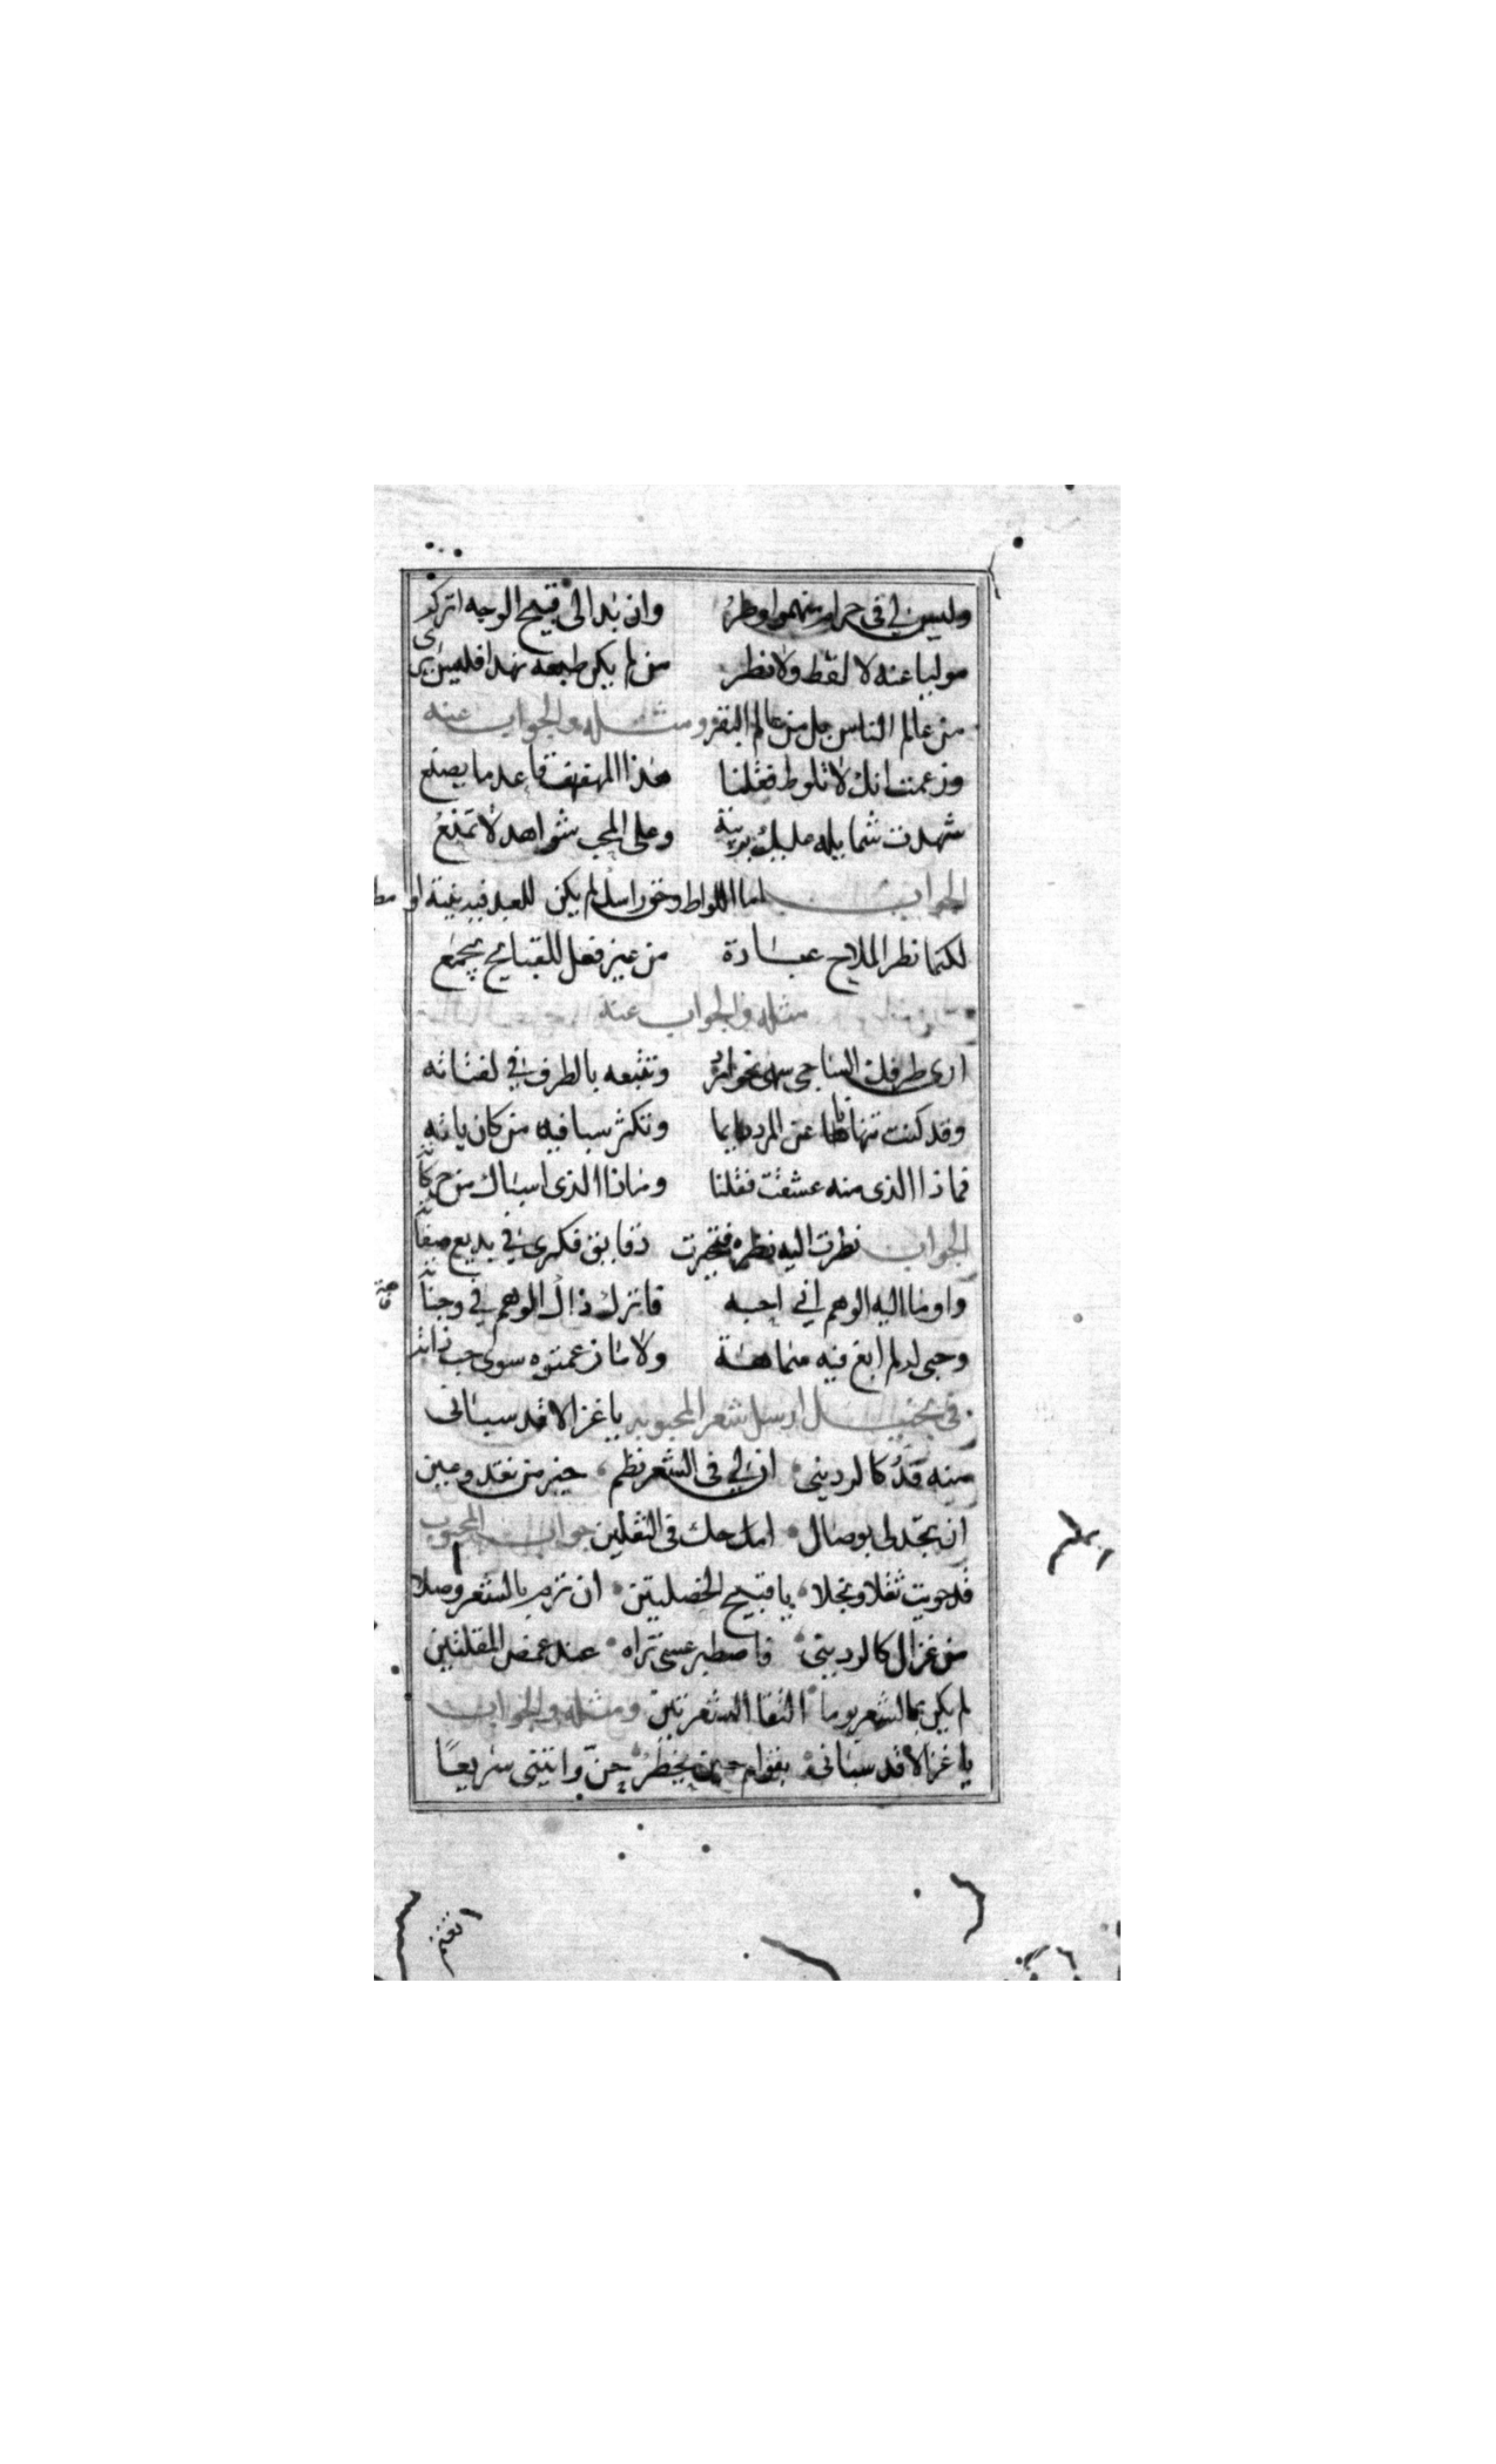 وليس لي في حرام منهموا وطرُ وان بدا لي قبيح الوجه اتركه
موليا عنه لا لفظ ولا نظر من لم يكن طبعه هذا فليس يرى
من عالم الناس بل من عالم البقر ومثله والجواب عنه
وزعمت انك لا تلوط فقلنا هذا المهفهف قاعد ما يصنع
شهدت شمايله عليك بريبة وعلى المحب شواهد لا تمنعُ
الجواب اما اللواط وحق راسك لم يكن للعبد فيه بغية او مط
لكنما نظر الملاح عبادة من غير فعل للقبايح يجمع
مثله والجواب عنه
ارى طرفك الساجي نحو وتتبعه بالطرف في لفتاته
وقد كنت تنهانا عن المرد دايما وتكثر سبا فيه من كان ياته
فماذا الذي منه عشقت فقلنا وماذا الذي اسباك من حركاته
الجواب نظرت اليه نظرة فتحيرت دقايق فكري في بديع صفاته
واوما اليه الوهم اني احبه فاترك ذاك الوهم في وجناته
وحبي له لم ابغ فيه ولا ما زعمتوه سوى حب ذاته
في بخيل ارسل شعر المحبوبه يا غزالا قد سباني
منه قدُّ كالرديني ان لي في الشعر نظم خير من نقد وعين
ان تجد لي بوصال امدحك في الثقلين جواب المحبوب
قد حويت ثقلا وبخلا يا قبيح الخصلتين ان ترم بالشعر وصلا
من غزال كالرديني فاصطبر عسى تراه عند غمض المقلتين
لم يكن بالشعر يوما التقا الشعرتين ومثله والجواب
يا غزالا قد سباني بقوام حين يخطرُ جنّ وانتنى سريعًا